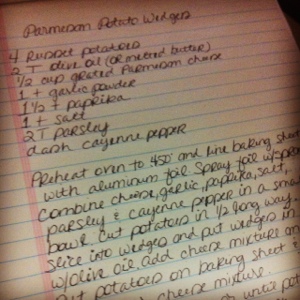 Parmesan Potato Wedges
4 Russet potatoes
2 T olive oil (or melted butter)
1/2 cup grated Parmesan cheese
1 t garlic powder
1 1/2 t paprika
1 t salt
2 T parsley
dash cayenne pepper
Preheat oven to 450 and line baking sheet
with aluminum foil. Spray foil w/
Combine cheese, garlic, paprika, salt,
parsley & cayenne pepper in a small
bowl. Cut potatoes in 1/2 long way.
Slice into wedges and put wedges in
w/olive oil add cheese mixture an
Put potatoes on baking sheet
cheese mixture.
until pot